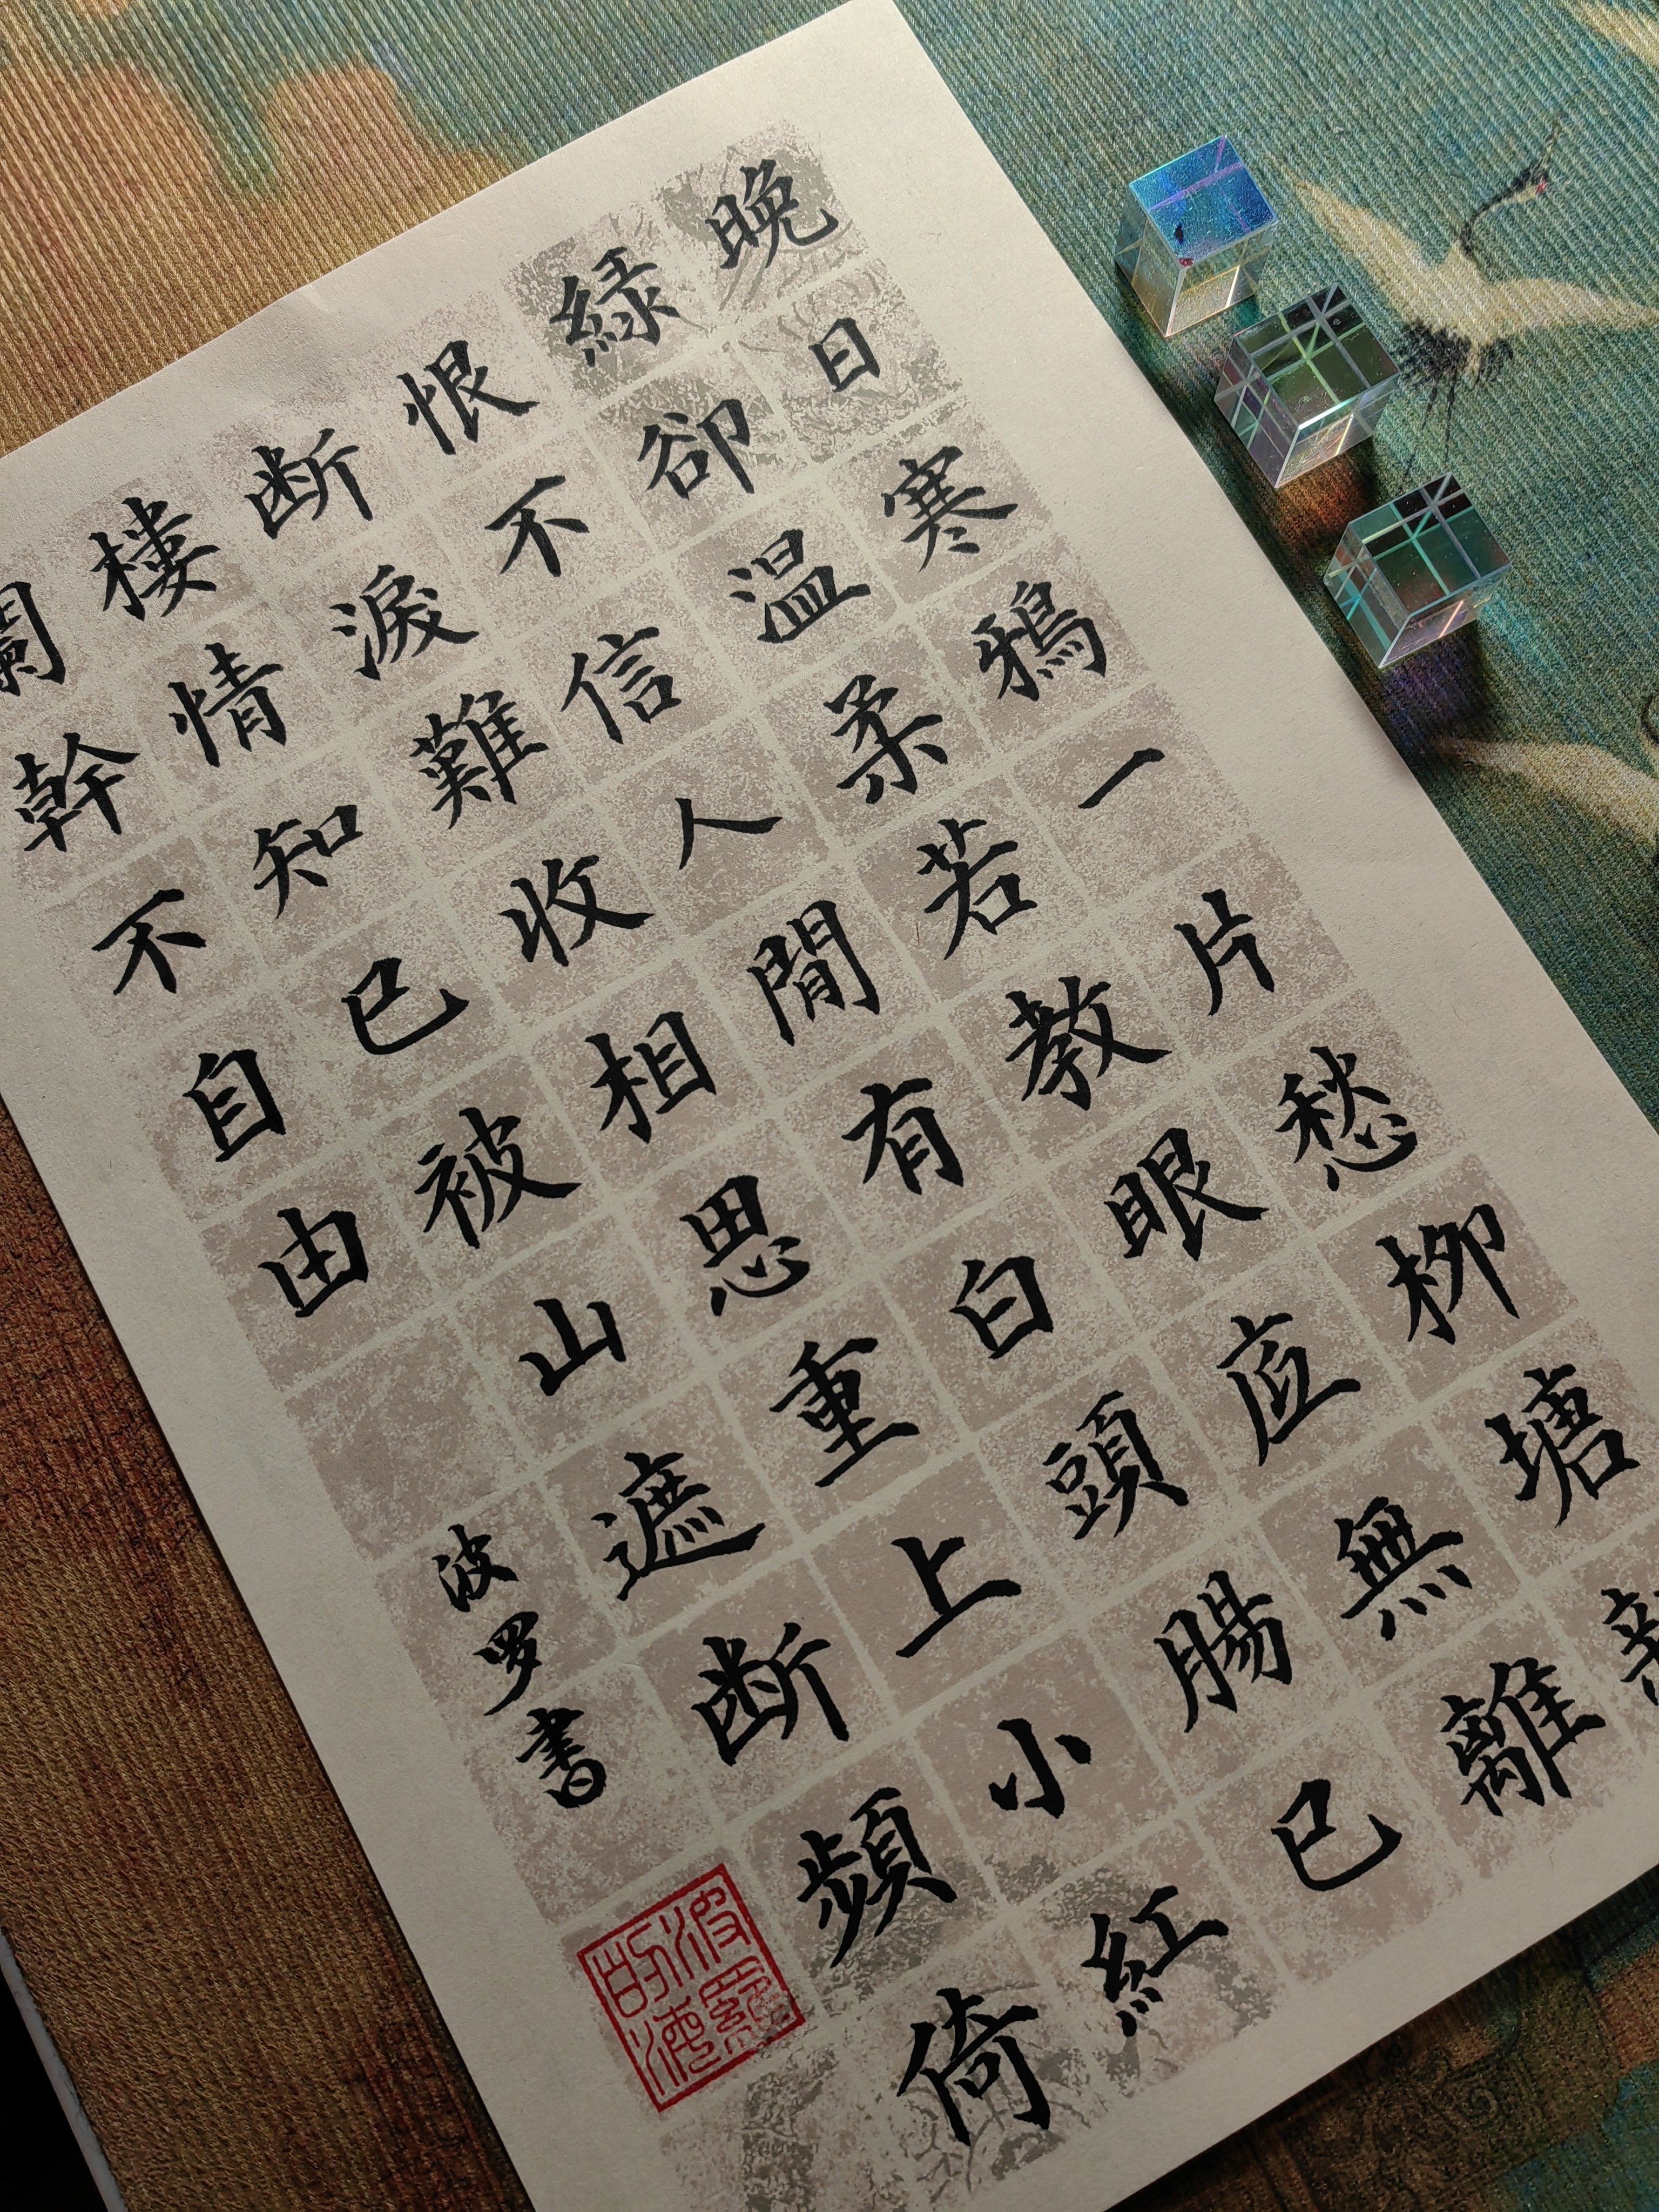 晚日寒鴉一片愁柳塘新
緑卻温柔若教眼底無離
恨不信人間有白頭腸已
断淚難收相思重上小紅
樓情知已被山遮断頻倚
闌幹不自由
波罗書
波羅的